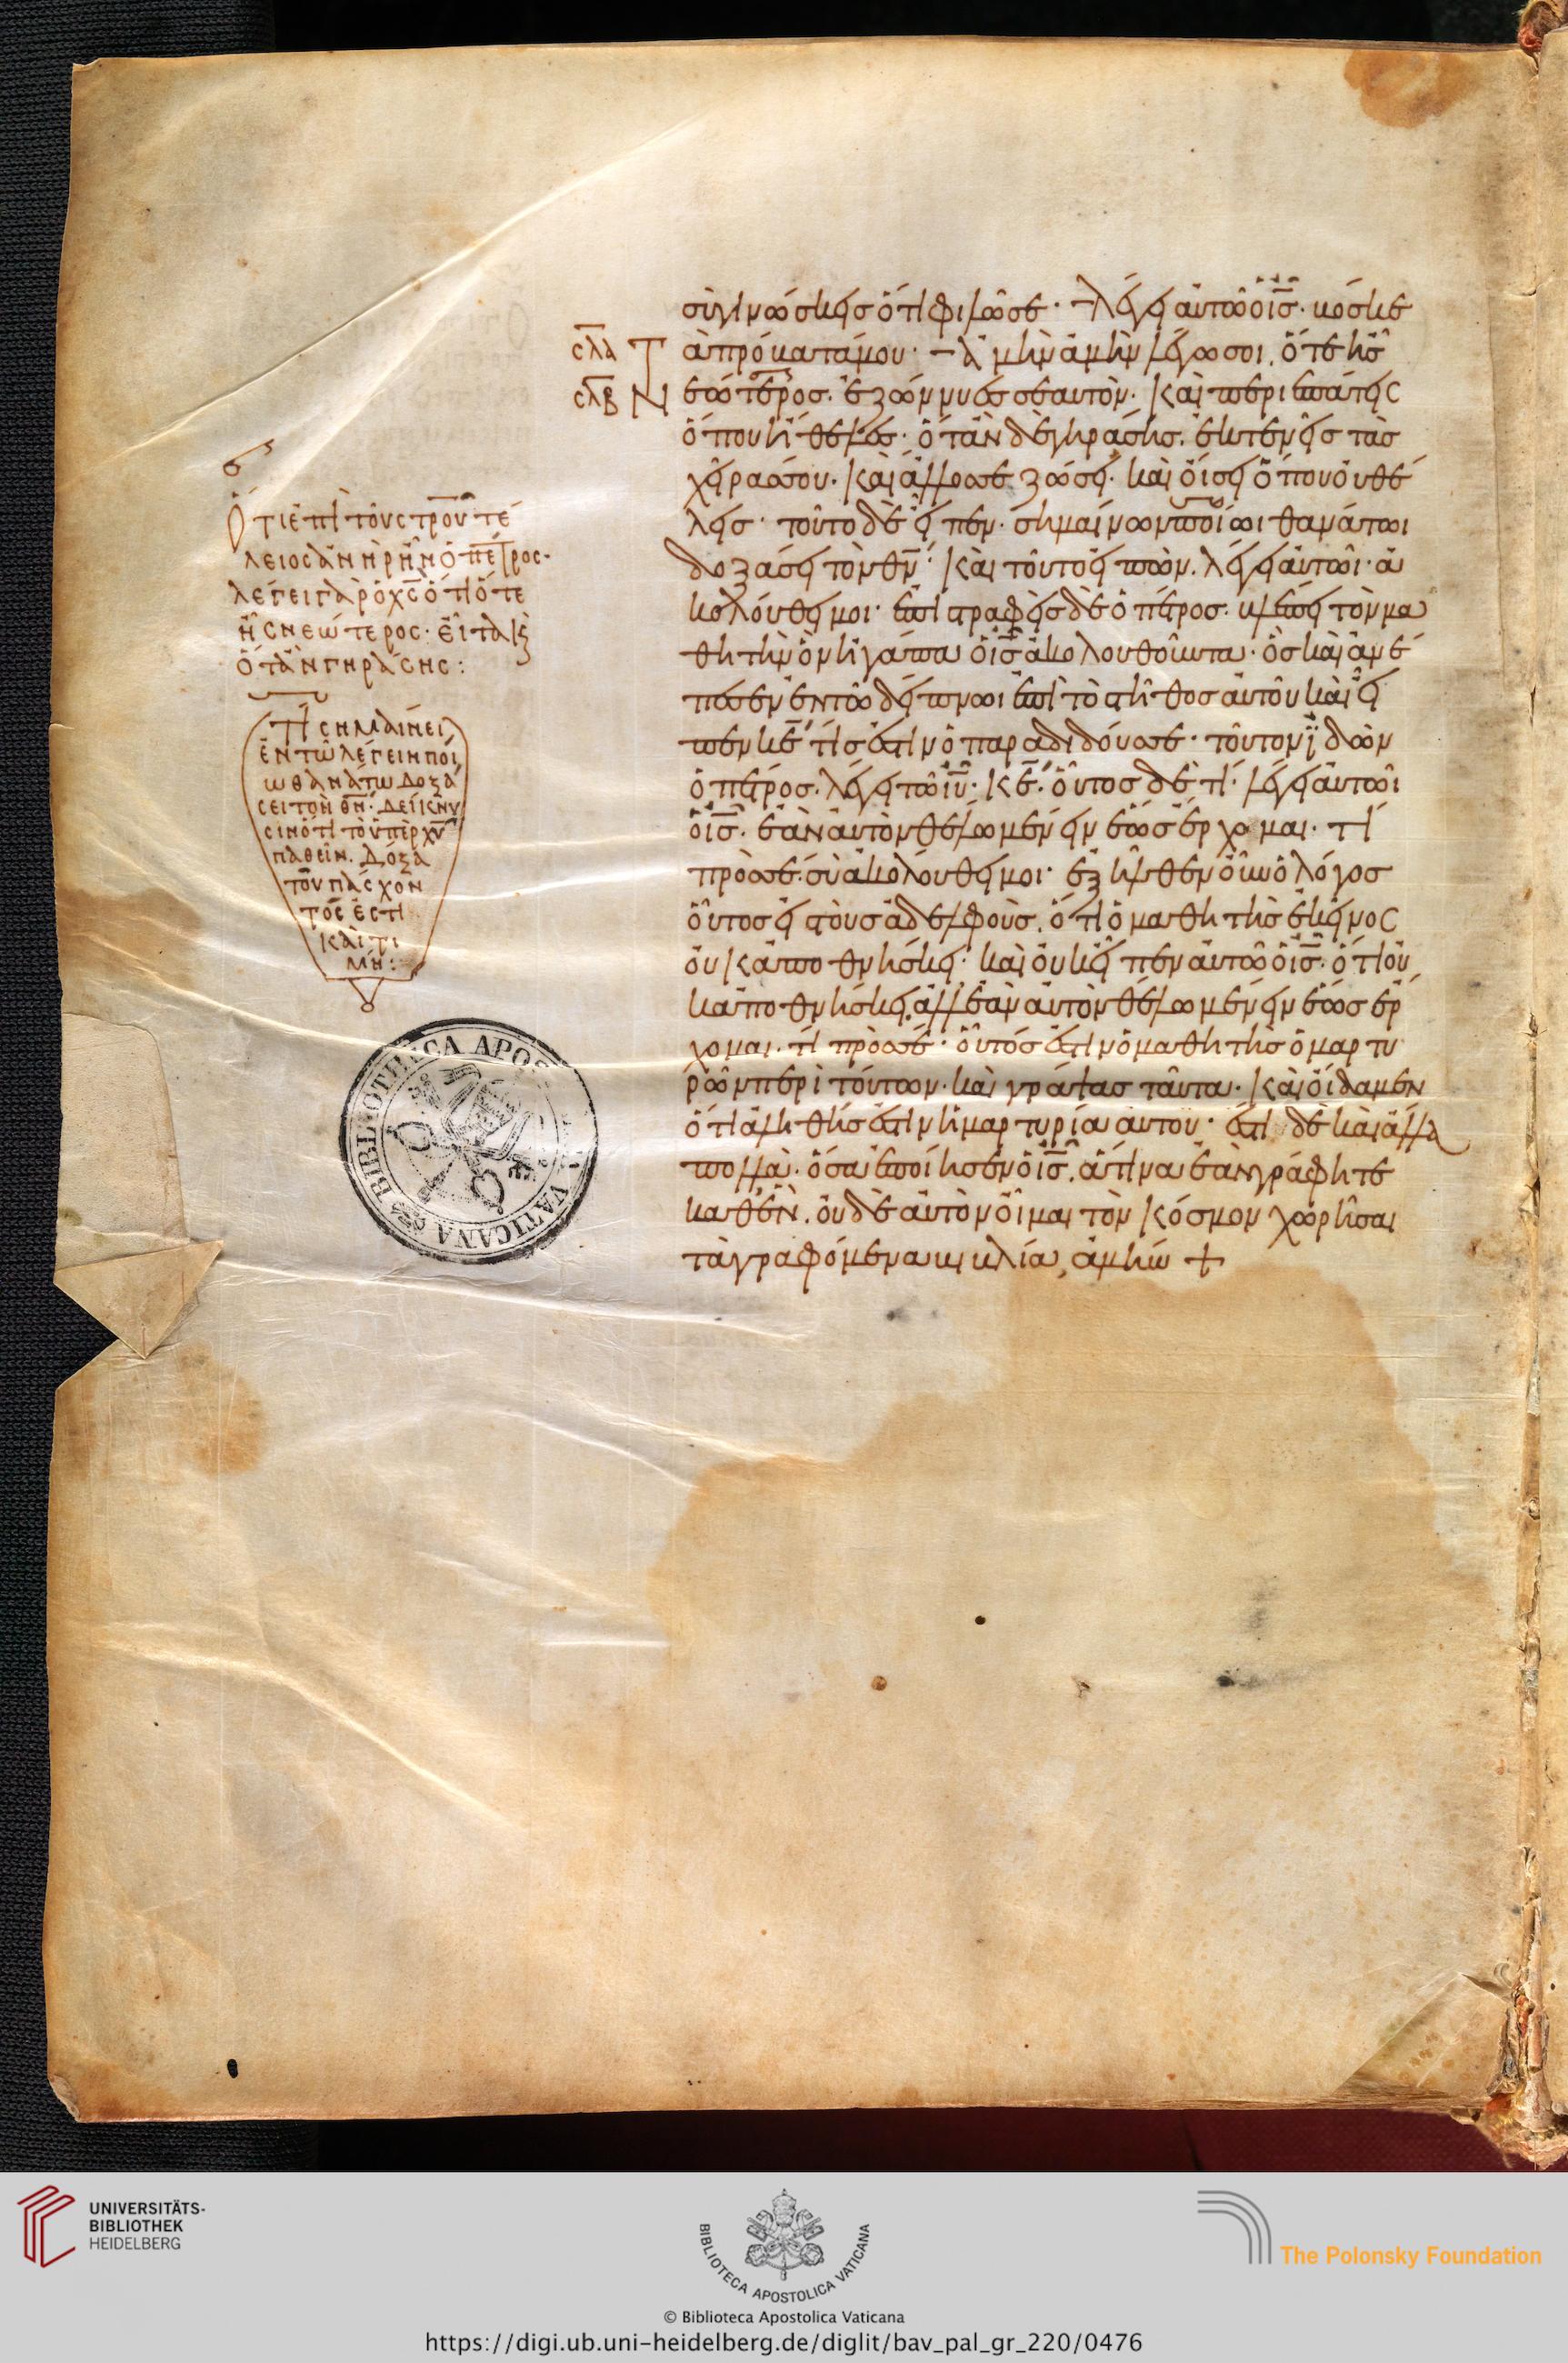 σὺ γινώσκεις ὅτι φιλῶ σε· λέγει αὐτῶ ὁ ις̅· βόσκε
σλα
τὰ πρόβατά μου· ἀμὴν ἀμὴν λέγω σοι, ὅτε ἧς
σλβ
νεώτερος. ἐζώννυες σεαυτὸν· καὶ περιεπάτεις
ὅπου ἤθελες· ὅταν δὲ γηράσης. ἐκτενεῖς τὰς
χεῖρας σου. καὶ ἄλλος σε ζώσει. καὶ οἴσει ὅπου οὐ θέ
λεις· τοῦτο δὲ εἶπεν. σημαίνων ποίωι θανάτωι
δοξάσει τὸν θν̅· καὶ τοῦτο εἰπὼν. λέγει αὐτῶι· ἀ
κολούθει μοι· ἐπιστραφεὶς δὲ ὁ πέτρος. βλέπει τὸν μα
θητὴν ὃν ἠγάπα ὁ ις̅ ἀκολουθοῦντα· ὃς καὶ ἀνέ
πεσεν ἐν τῶ δείπνωι ἐπὶ τὸ στῆθος αὐτοῦ καὶ εἶ
πεν κε̅ τίς ἐστιν ὁ παραδιδούς σε· τοῦτον ἰδὼν
ὁ πέτρος. λέγει τῶ ιυ̅· κε̅· οὗτος δὲ τί· λέγει αὐτῶι
ὁ ις̅. ἐὰν αὐτὸν θέλω μένειν ἕως ἔρχομαι. τί
πρὸς σε. σὺ ἀκολούθει μοι· ἐξῆλθεν οὖν ὁ λόγος
οὗτος εἰς τοὺς ἀδελφοὺς. ὅτι ὁ μαθητὴς ἐκεῖνος
οὐκ ἀποθνήσκει· καὶ οὐκ εἶπεν αὐτῶ ὁ ις̅. ὅτι οὐ
κ ἀποθνήσκει, ἀλλ ἐὰν αὐτὸν θέλω μένειν ἕως ἔρ
χομαι. τί πρὸς σέ· οὗτός ἐστιν ὁ μαθητὴς ὁ μαρτυ
ρῶν περὶ τούτων. καὶ γράψας ταῦτα. καὶ οἴδαμεν
ὅτι ἀληθής ἐστιν ἡ μαρτυρία αὐτοῦ· ἔστι δὲ καὶ ἄλλα
πολλὰ. ὅσα ἐποίησεν ὁ ις̅. ἅτινα ἐὰν γράφητε
καθ ἓν. οὐδὲ αὐτὸν οἶμαι τὸν κόσμον χωρῆσαι
τὰ γραφόμενα βιβλία, ἀμήν +
Ὅτι ἐπὶ τοῦ στρου τέ
λειος ἀνὴρ ἦν ὁ πέτρος·
λέγει γὰρ ὁ χς̅ ὅτι ὅτε
ἦς νεώτερος· εἶτα καὶ
ὅταν γηράσης:
Τί σημαίνει
ἐν τῶ λέγειν ποί
ω θανάτω δοξά
σει τὸν θν̅· δείκνυ
σιν ὅτι τὸ ὑπὲρ χυ̅
παθεῖν. δόξα
τοῦ πάσχον
τος ἐστι
καὶ τι
μή:
BIBLIOTHECA APOSTOLICA VATICANA
UNIVERSITÄTS-
BIBLIOTHEK
HEIDELBERG
BIBLIOTECA APOSTOLICA VATICANA
The Polonsky Foundation
© Biblioteca Apostolica Vaticana
https://digi.ub.uni-heidelberg.de/diglit/bav_pal_gr_220/0476